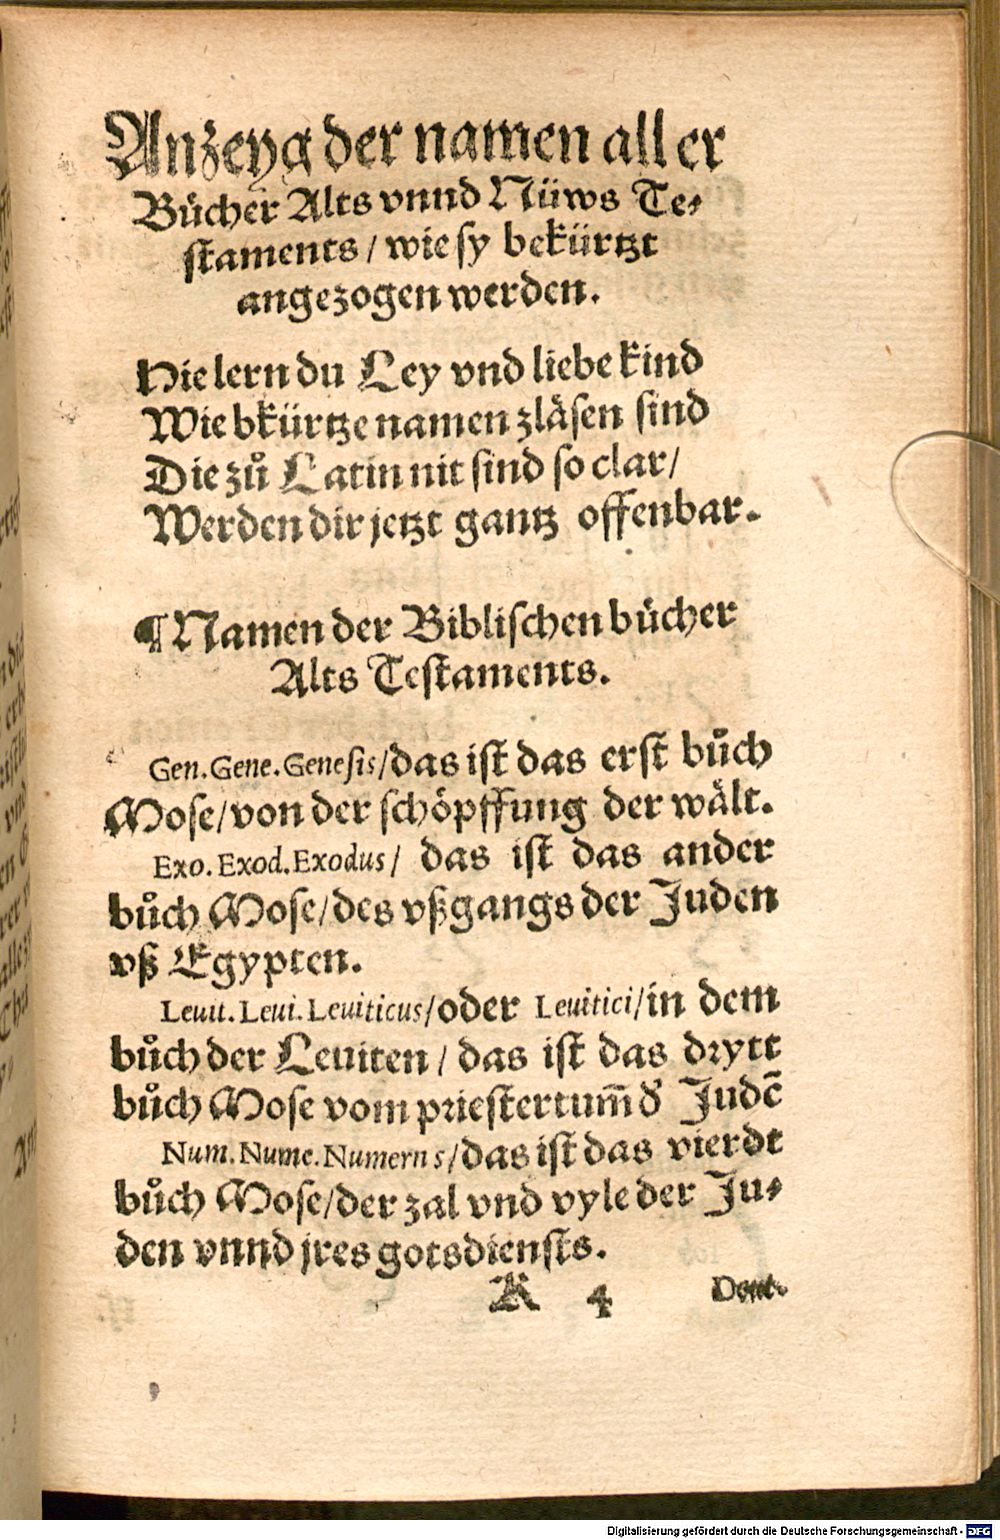 Anzeyg der namen aller
Bücher Alts vnnd Nüws Te⸗
staments / wie sy bekürtzt
angezogen werden.
Hie lern du Ley vnd liebe kind
Wie bkürtze namen zläsen sind
Die zů Latin nit sind so clar /
Werden dir jetzt gantz offenbar.
¶ Namen der Biblischen bücher
Alts Testaments.
Gen. Gene. Genesis / das ist das erst bůch
Mose / von der schöpffung der wält.
Exo. Exod. Exodus / das ist das ander
bůch Mose / des vßgangs der Juden
vß Egypten.
Leuit. Leui. Leuiticus / oder Leuitici / in dem
bůch der Leuiten / das ist das drytt
bůch Mose vom priestertum̄ d' Judē
Num. Nume. Numerus / das ist das vierdt
bůch Mose / der zal vnd vyle der Ju⸗
den vnnd jres gotsdiensts.
K 4 Deut.
Digitalisierung gefördert durch die Deutsche Forschungsgemeinschaft - DFG